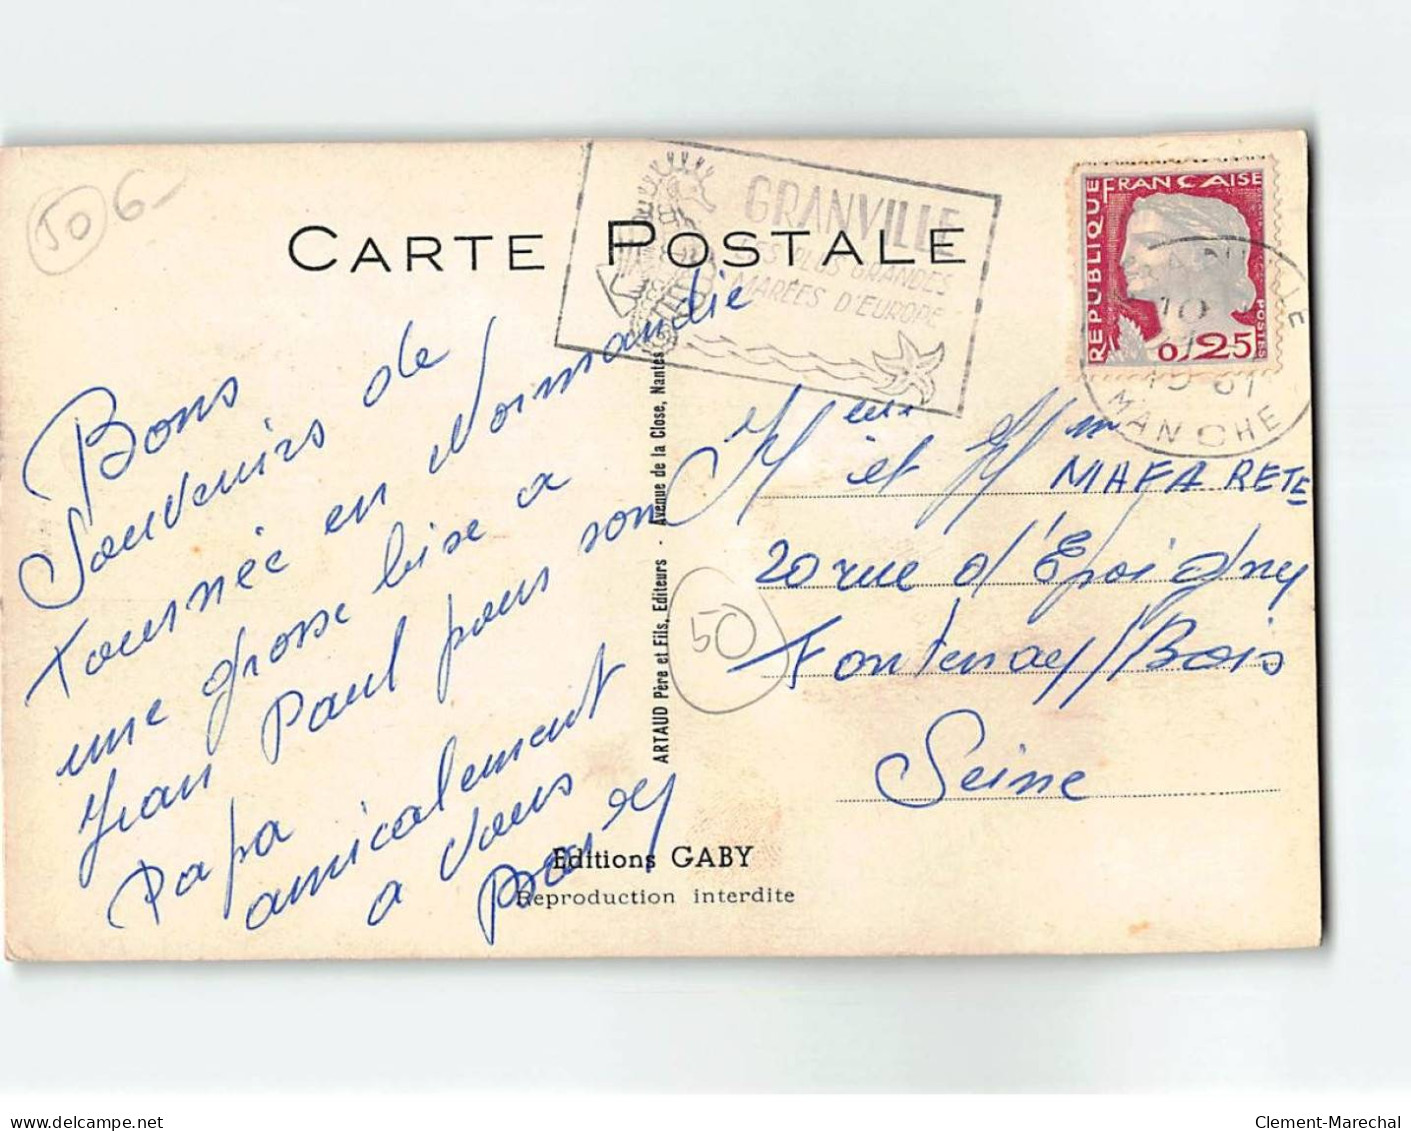 50 6-
CARTE POSTALE
GRANVILLE
SES PLUS GRANDES
MARÉES D'EUROPE
RÉPUBLIQUE FRANÇAISE
0,25
POSTES
10
19 61
MANCHE
Bons
Souvenirs de
Tournée en Normandie
une grosse bise a
Jean Paul pour son
Papa
amicalement
a vous
ARTAUD Père et Fils, Editeurs - Avenue de la Close, Nantes
50
et M MAFARETE
20 rue d'Epoigny
Fontenay/Bois
Seine
Editions GABY
Reproduction interdite
delcampe.net
Clement-Marechal